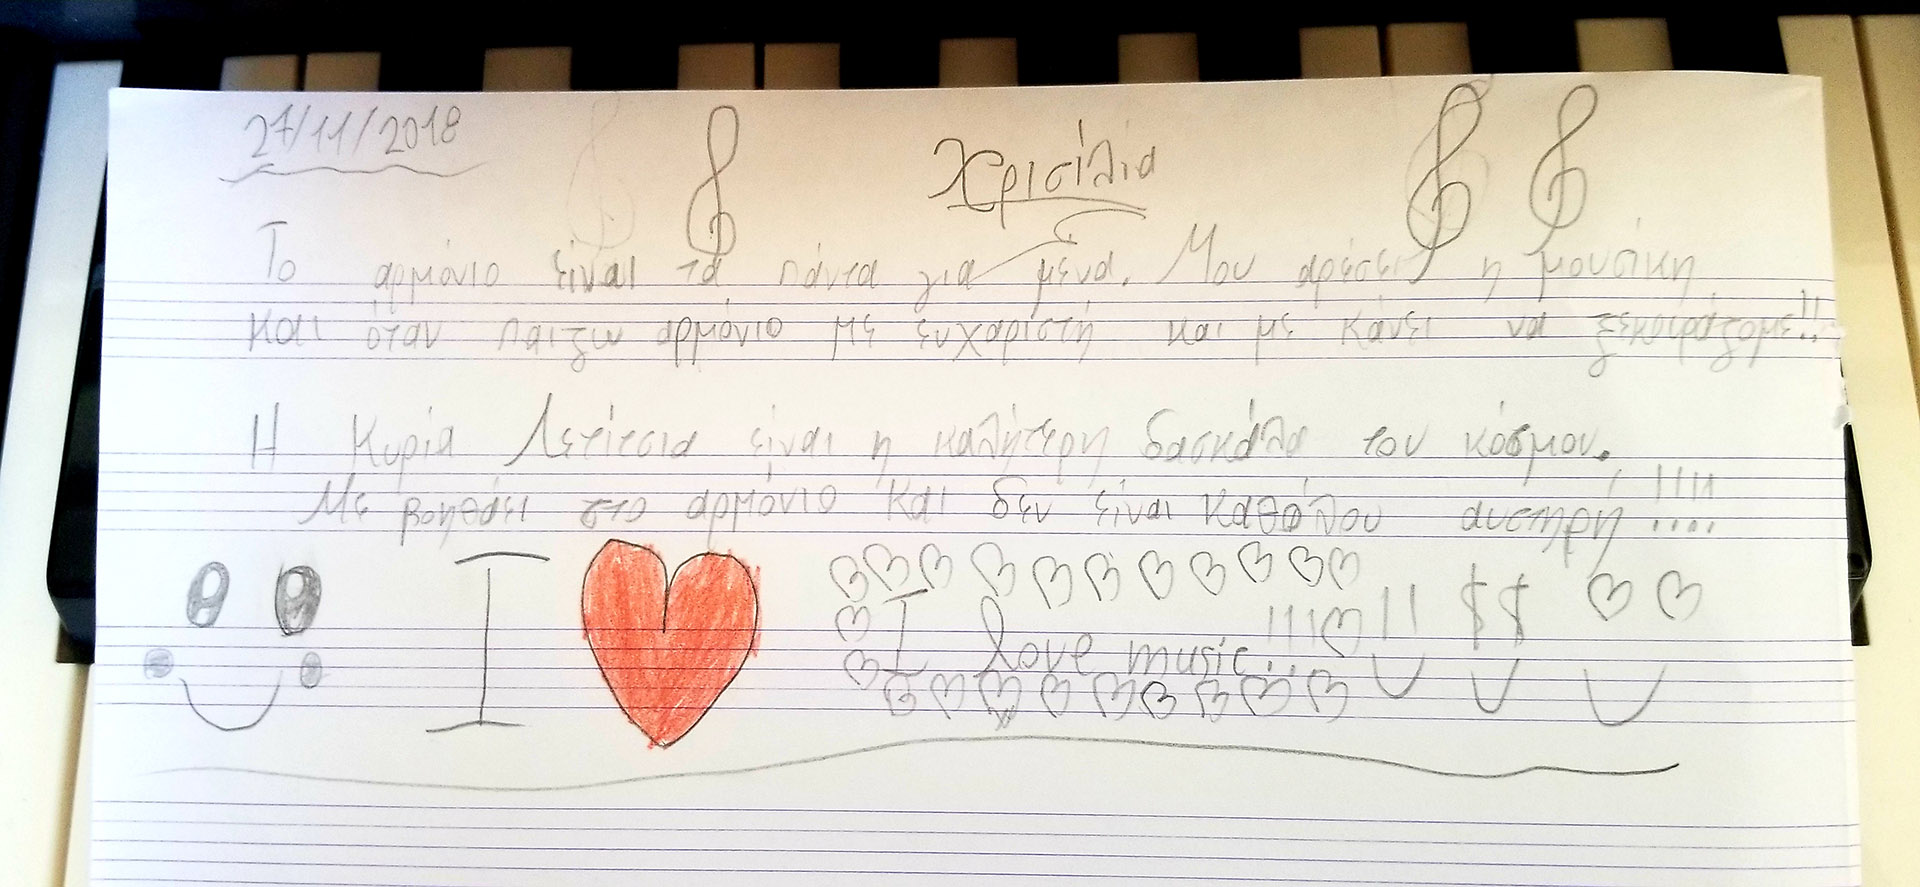 27/11/2018
Χρισίλια
Το αρμόνιο είναι τα πάντα για μένα. Μου αρέσει η μουσίκη
και όταν παιζω αρμόνιο με ευχαριστή και με κάνει να ξεκοιράζομε!!
Η Κυρία Λετίτσια είναι η καλήτερη δασκάλα του κόσμου.
Με βοηθάει στο αρμόνιο και δεν είναι καθόλου αυστηρή!!!!
I
I love music!!!